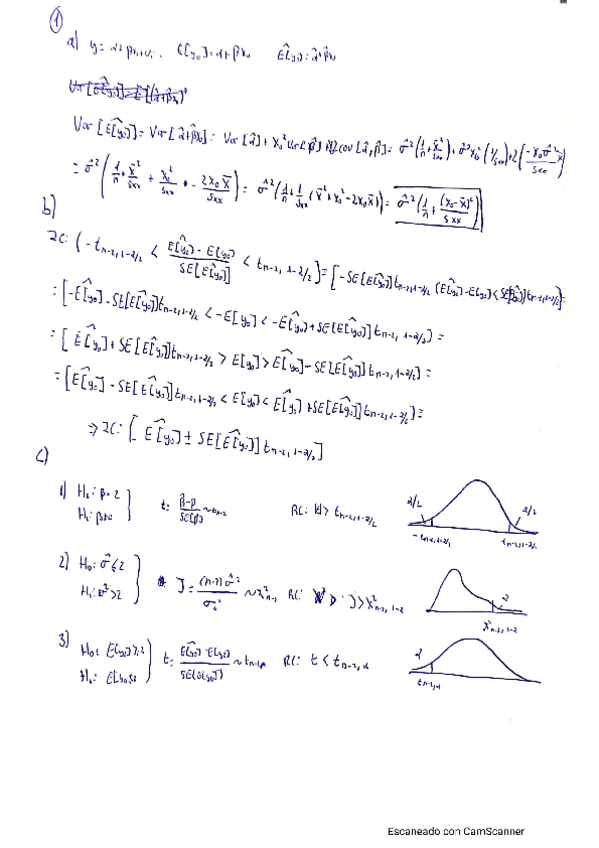 ①
a) y = α + βxᵢ + uᵢ . E[y₀] = α + βx₀ Ê[y₀] = α̂ + β̂x₀
Var[Ê[y₀]] = Var[α̂ + β̂x₀] = Var[α̂] + x₀² Var[β̂] + 2x₀cov[α̂, β̂] = σ̂²(1/n + x̄²/Sxx) + σ̂²x₀²(1/Sxx) + 2(-x₀σ̂²x̄/Sxx)
= σ̂²(1/n + x̄²/Sxx + x₀²/Sxx - 2x₀x̄/Sxx) = σ̂²(1/n + 1/Sxx (x̄² + x₀² - 2x₀x̄)) = σ̂²(1/n + (x₀-x̄)²/Sxx)
b)
IC: (-tₙ₋₂, ₁₋α/₂ < Ê[y₀] - E[y₀] / SE[Ê[y₀]] < tₙ₋₂, ₁₋α/₂) = [-SE[Ê[y₀]] tₙ₋₂, ₁₋α/₂ < Ê[y₀] - E[y₀] < SE[Ê[y₀]] tₙ₋₂, ₁₋α/₂) =
= [-Ê[y₀] - SE[Ê[y₀]] tₙ₋₂, ₁₋α/₂ < -E[y₀] < -Ê[y₀] + SE[Ê[y₀]] tₙ₋₂, ₁₋α/₂) =
= [Ê[y₀] + SE[Ê[y₀]] tₙ₋₂, ₁₋α/₂ > E[y₀] > Ê[y₀] - SE[Ê[y₀]] tₙ₋₂, ₁₋α/₂) =
= [Ê[y₀] - SE[Ê[y₀]] tₙ₋₂, ₁₋α/₂ < E[y₀] < Ê[y₀] + SE[Ê[y₀]] tₙ₋₂, ₁₋α/₂) =
⇒ IC: [Ê[y₀] ± SE[Ê[y₀]] tₙ₋₂, ₁₋α/₂]
c)
1) H₀: β = 2
H₁: β ≠
t = β̂-β / SE(β̂) ~ tₙ₋₂ RC: |t| > tₙ₋₂, ₁₋α/₂
α/2 α/2
-tₙ₋₂, ₁₋α/₂ tₙ₋₂, ₁₋α/₂
2) H₀: σ² ≤ 2
H₁: σ² > 2
J = (n-2)σ̂² / σ₀² ~ χ²ₙ₋₂ RC: J > χ²ₙ₋₂, ₁₋α
α
χ²ₙ₋₂, ₁₋α
3) H₀: E[y₀]
H₁: E[y₀]
t = Ê[y₀] - E[y₀] / SE(Ê[y₀]) ~ tₙ₋₂ RC: t < tₙ₋₂, α
α
tₙ₋₂, α
Escaneado con CamScanner